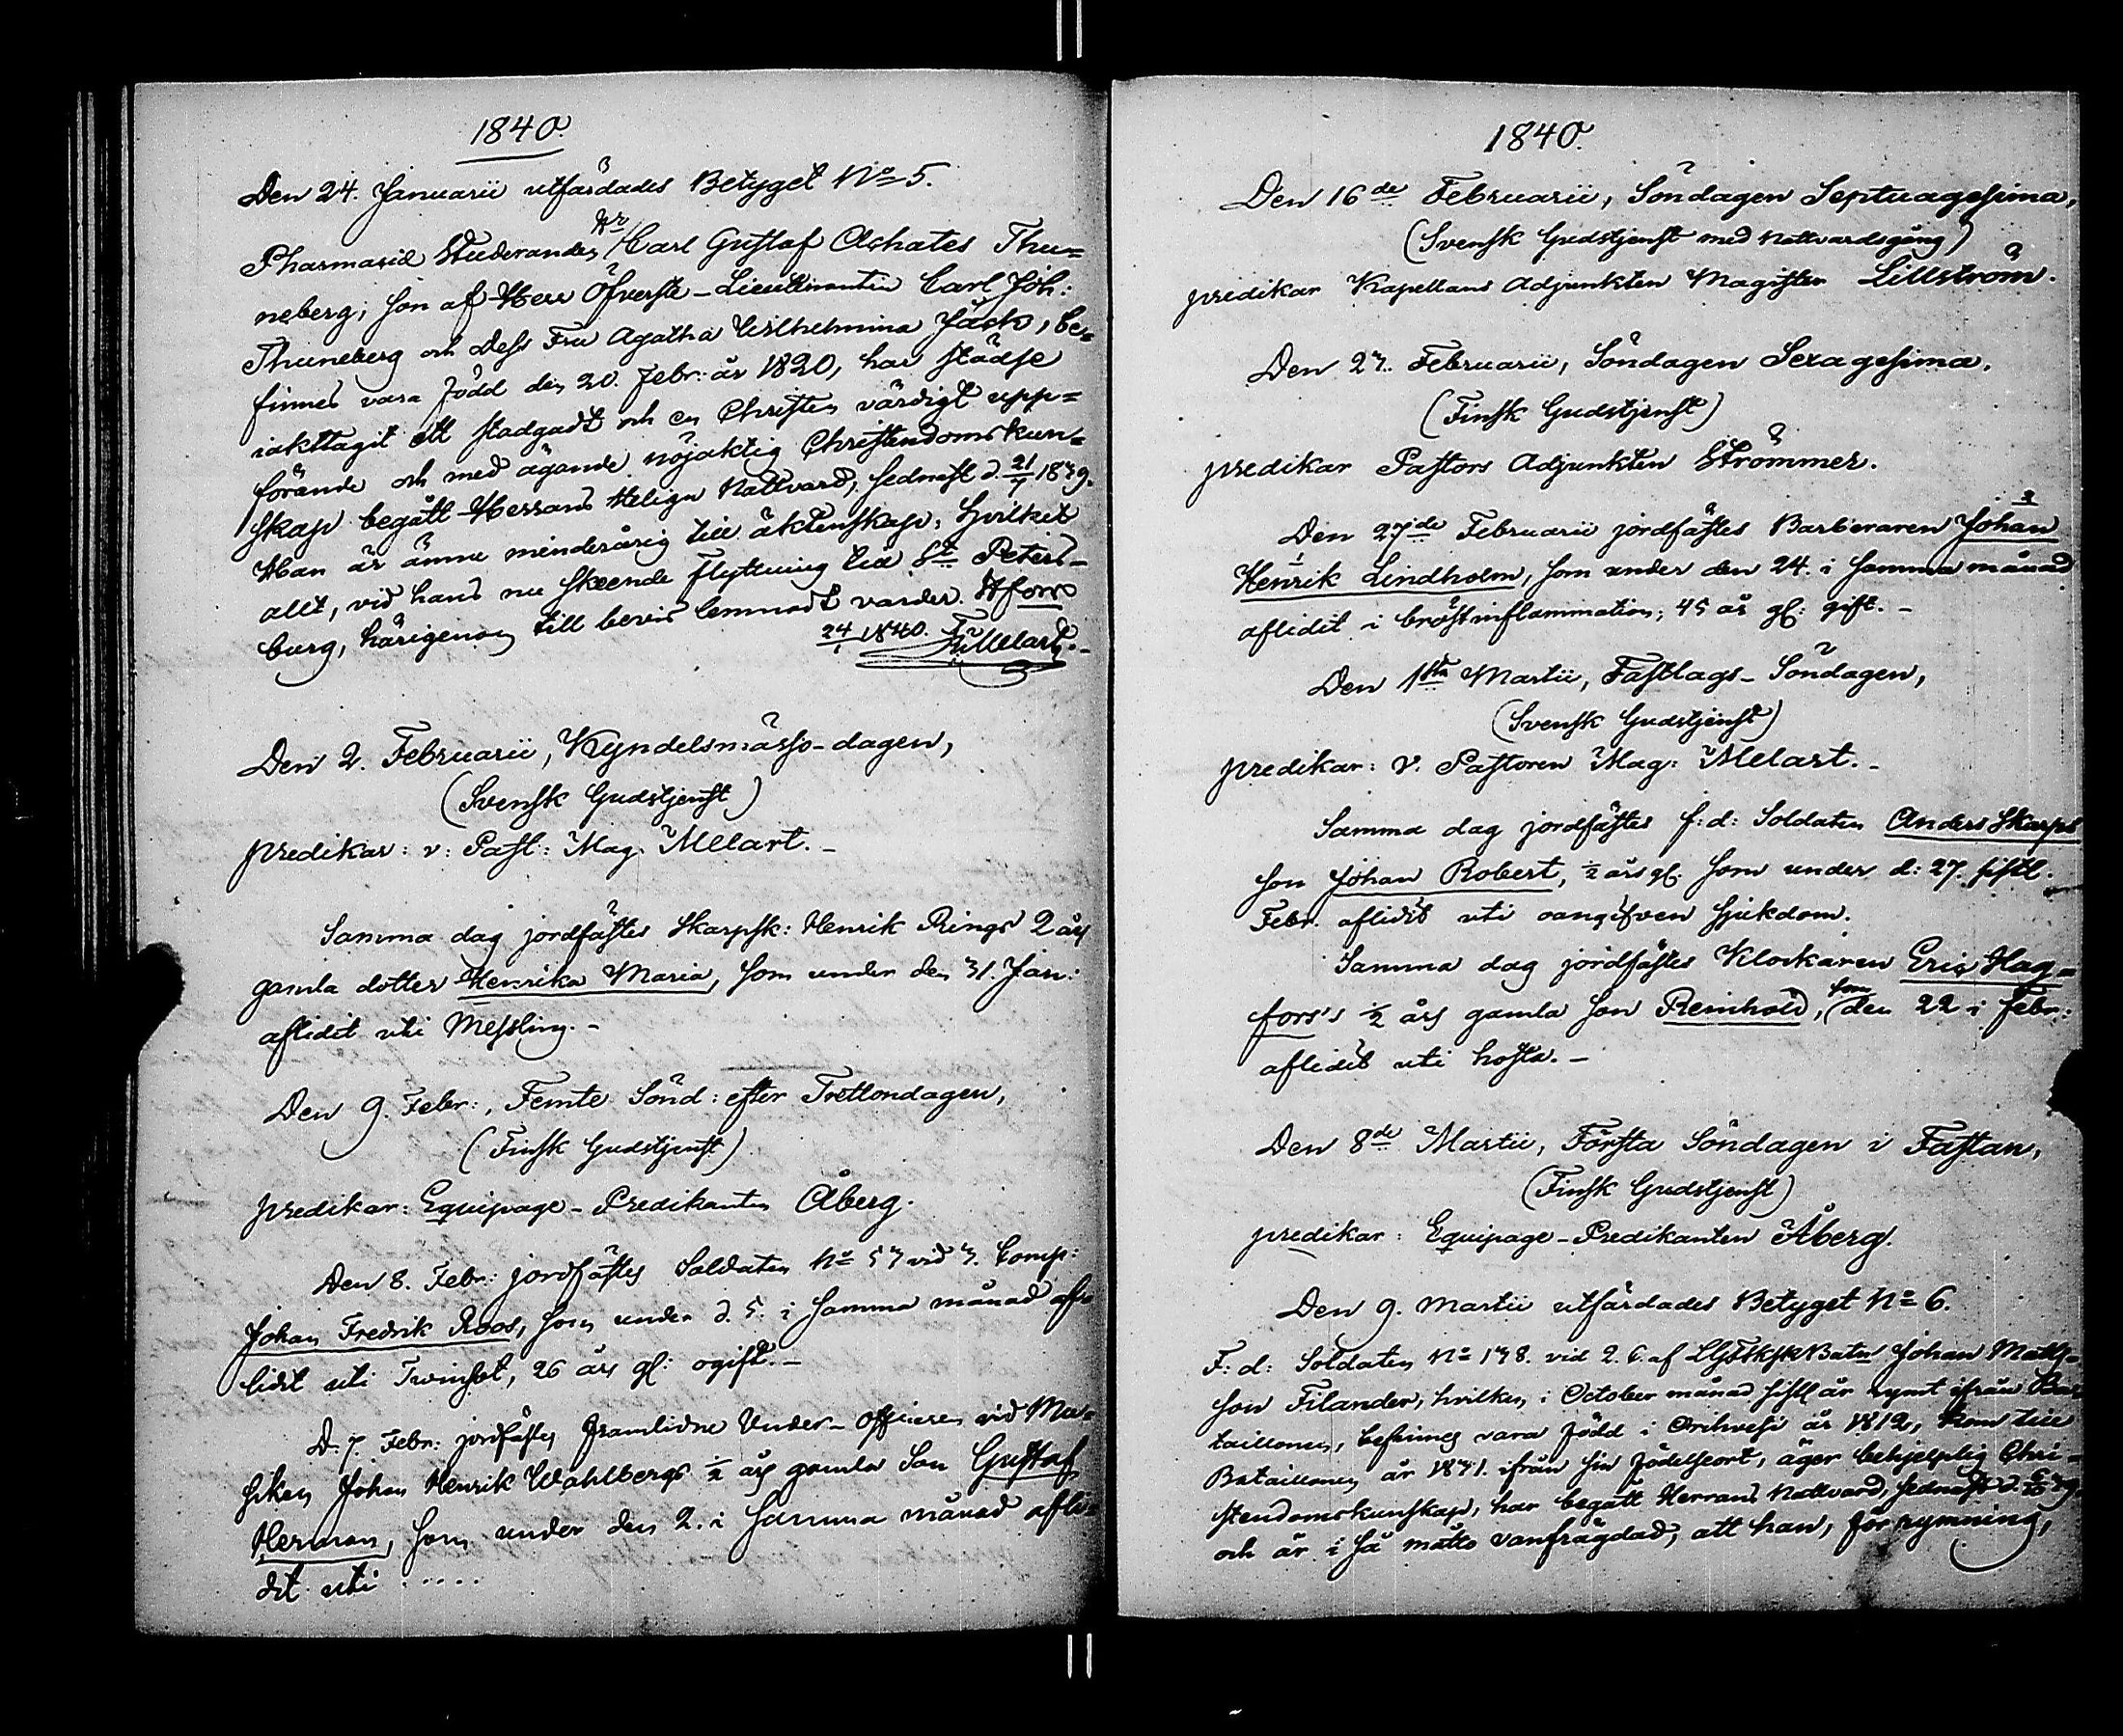 1840.
Den 24. Januarii utfärdades Betyget No 5.
Pharmacie Studeranden Hr Carl Gustaf Achates Thu-
neberg, son af Herr Öfverste-Lieutenanten Carl Joh:
Thuneberg och Dess Fru Agatha Wilhelmina Jack, be-
finnes vara född den 20. Febr: år 1820, har städse
iakttagit ett stadgadt och en Christen värdigt upp-
förande och med ägande nöjaktig Christendomskun-
skap begått Herrans Heliga Nattvard, sednast d. 21/7 1839.
Han är ännu minderårig till äktenskap, Hvilket
allt, vid hans nu skeende flyttning till St. Peters-
burg, härigenom till bevis lemnadt varder. Hfors
24/1 1840. Melart.
Den 2. Februarii, Kyndelsmässo-dagen,
(Svensk Gudstjenst)
predikar: v: Past: Mag. Melart. -
Samma dag jordfästes Skarpsk: Henrik Rings 2 års
gamla dotter Henrika Maria, som under den 31. Jan:
aflidit uti Messling. -
Den 9. Febr:, Femte Sönd: efter Trettondagen,
(Finsk Gudstjenst)
predikar: Equipage-Predikanten Åberg.
Den 8. Febr: jordfästes Soldaten No 53 vid 3. Comp:
Johan Fredrik Roos, som under d. 5. i samma månad af-
lidit uti Tvinsot, 26 års gl: ogift. -
D. 7. Febr: jordfästes framlidne Under-officeren vid Mu-
siken Johan Henrik Wahlbergs ½ års gamla Son Gustaf
Herman, som under den 2. i samma månad afli-
dit uti .....
1840.
Den 16de Februarii, Söndagen Septuagesima,
(Svensk Gudstjenst med Nattvardsgång)
predikar Kapellans Adjunkten Magister Lillström.
Den 23. Februarii, Söndagen Sexagesima.
(Finsk Gudstjenst)
predikar Pastors Adjunkten Strömmer.
Den 27de Februarii jordfästes Barberaren Johan
Henrik Lindholm, som under den 24. i samma månad
aflidit i bröstinflammation; 45 år gl: gift. -
Den 1sta Martii, Fastlags-Söndagen,
(Svensk Gudstjenst)
predikar: V. Pastoren Mag: Melart. -
Samma dag jordfästes f: d: Soldaten Anders Skarps
son Johan Robert, ½ års gl. som under d: 27. sistl.
Febr. aflidit uti oangifven sjukdom.
Samma dag jordfästes Klockaren Eric Hag-
fors's ½ års gamla son Reinhold, som den 22 i Febr:
aflidit uti hosta. -
Den 8de Martii, Första Söndagen i Fastan,
(Finsk Gudstjenst)
predikar: Equipage-Predikanten Åberg.
Den 9. Martii utfärdades Betyget No 6.
F: d: Soldaten No 138. vid 2. C. af Johan Matts-
son Filander, hvilken i October månad sistl. år rymt ifrån Ba-
taillonen, befinnes vara född i Orihvesi år 1812, kom till
Bataillonen år 1831. ifrån sin födelseort, äger behjelplig Chri-
stendomskunskap, har begått Herrans Nattvard, sednast d.
och är i så måtto vanfrägdad, att han, för rymning,